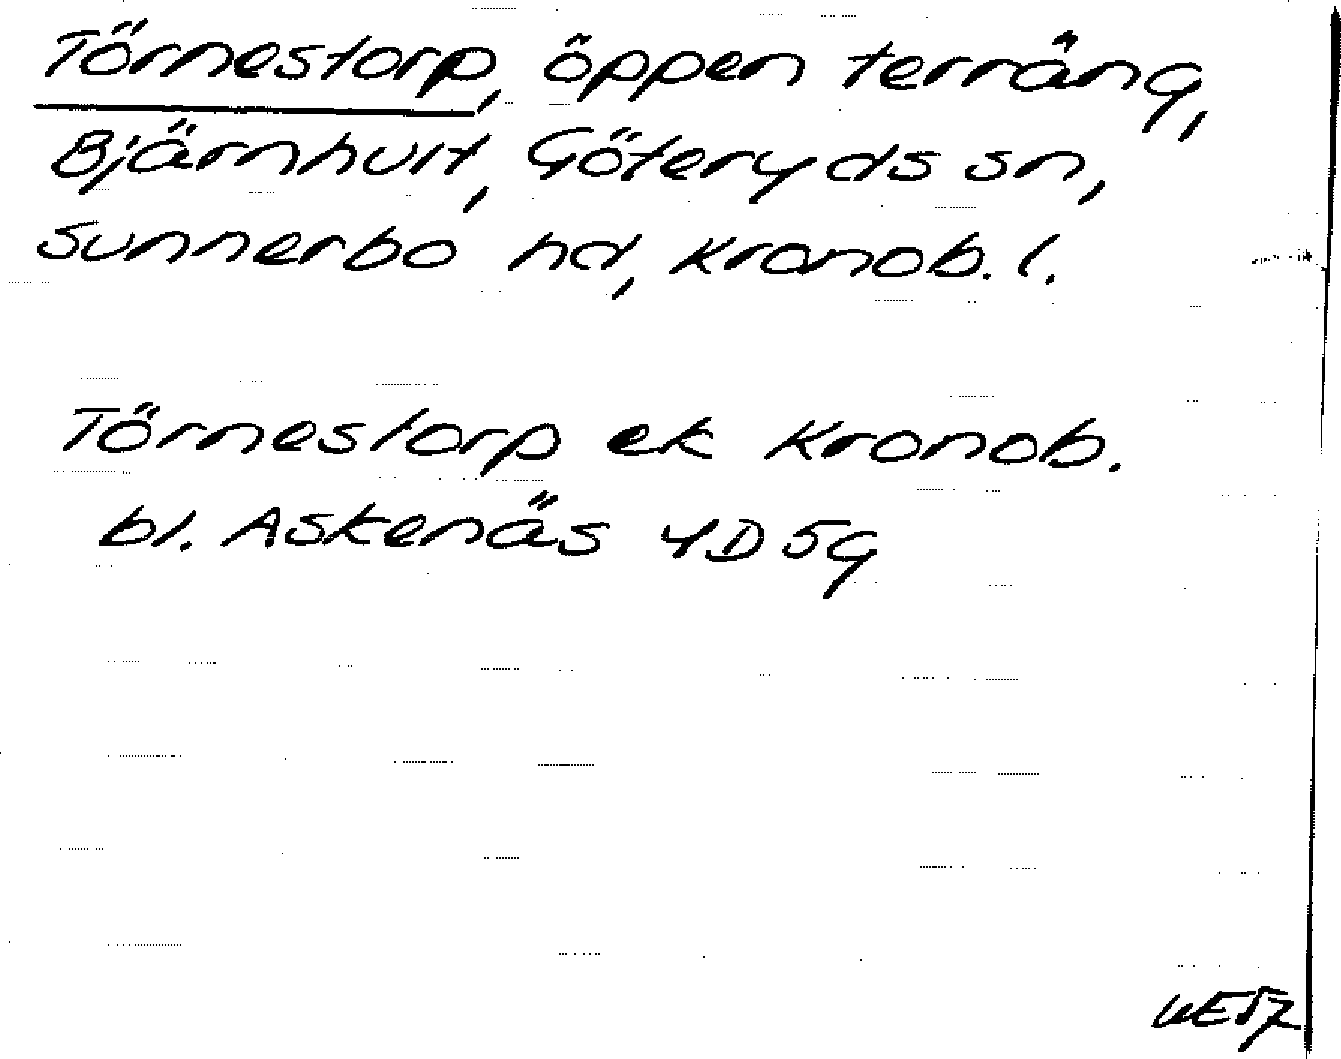 Törnestorp, öppen terräng,
Bjärnhult, Göteryds sn,
Sunnerbo hd, Kronob. l.
Törnestorp ek Kronob.
bl. Askenäs 4D 5g